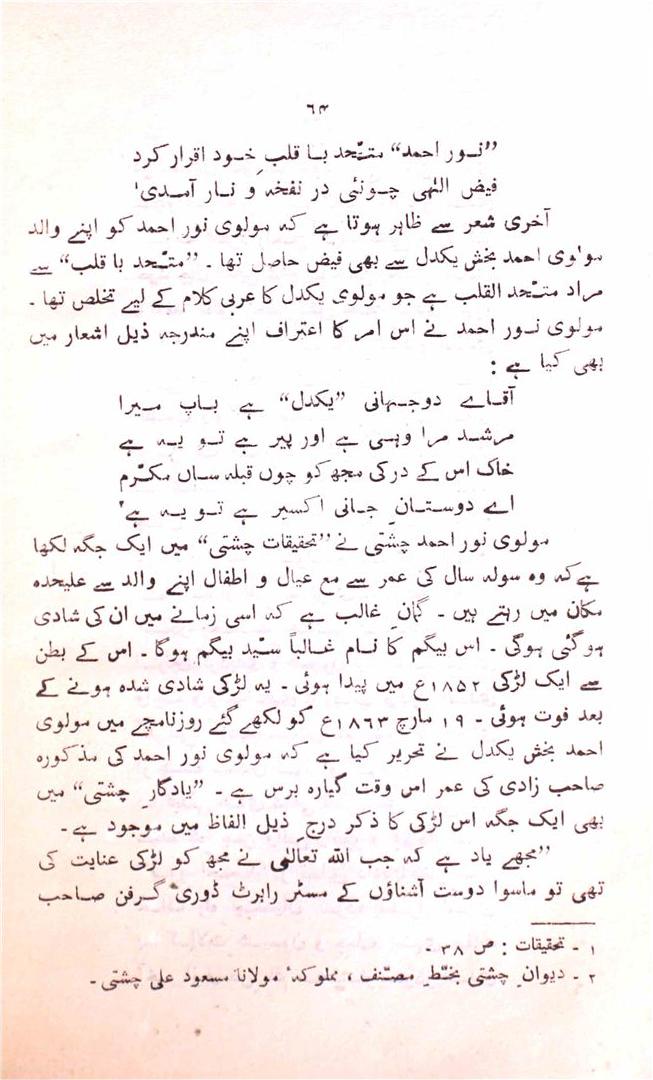 ٦٤
”نور احمد“ متّحد با قلبِ خود اقرار کرد
فیض الٰہی چونئی در نفخہ و نار آمدی۱
آخری شعر سے ظاہر ہوتا ہے کہ مولوی نور احمد کو اپنے والد
مولوی احمد بخش یکدل سے بھی فیض حاصل تھا ۔ ”متّحد با قلب“ سے
مراد متّحد القلب ہے جو مولوی یکدل کا عربی کلام کے لیے تخلص تھا ۔
مولوی نور احمد نے اس امر کا اعتراف اپنے مندرجہ ذیل اشعار میں
بھی کیا ہے :
آقاے دوجہانی ”یکدل“ ہے باپ میرا
مرشد مرا وہی ہے اور پیر ہے تو یہ ہے
خاک اس کے در کی مجھ کو چوں قبلہ ساں مکرّم
اے دوستانِ جانی اکسیر ہے تو یہ ہے۲
مولوی نور احمد چشتی نے ”تحقیقات چشتی“ میں ایک جگہ لکھا
ہے کہ وہ سولہ سال کی عمر سے مع عیال و اطفال اپنے والد سے علیحدہ
مکان میں رہتے ہیں ۔ گمانِ غالب ہے کہ اسی زمانے میں ان کی شادی
ہو گئی ہوگی ۔ اس بیگم کا نام غالباً سیّد بیگم ہوگا ۔ اس کے بطن
سے ایک لڑکی ۱۸۵۲ع میں پیدا ہوئی ۔ یہ لڑکی شادی شدہ ہونے کے
بعد فوت ہوئی ۔ ۱۹ مارچ ۱۸۶۳ع کو لکھے گئے روزنامچے میں مولوی
احمد بخش یکدل نے تحریر کیا ہے کہ مولوی نور احمد کی مذکورہ
صاحب زادی کی عمر اس وقت گیارہ برس ہے ۔ ”یادگارِ چشتی“ میں
بھی ایک جگہ اس لڑکی کا ذکر درجِ ذیل الفاظ میں موجود ہے ۔
”مجھے یاد ہے کہ جب اللہ تعالیٰ نے مجھ کو لڑکی عنایت کی
تھی تو ماسوا دوست آشناؤں کے مسٹر رابرٹ ڈوری گرفن صاحب
۱ ۔ تحقیقات : ص ۳۸ ۔
۲ ۔ دیوانِ چشتی بخطِّ مصنّف ، مملوکۂ مولانا مسعود علی چشتی ۔